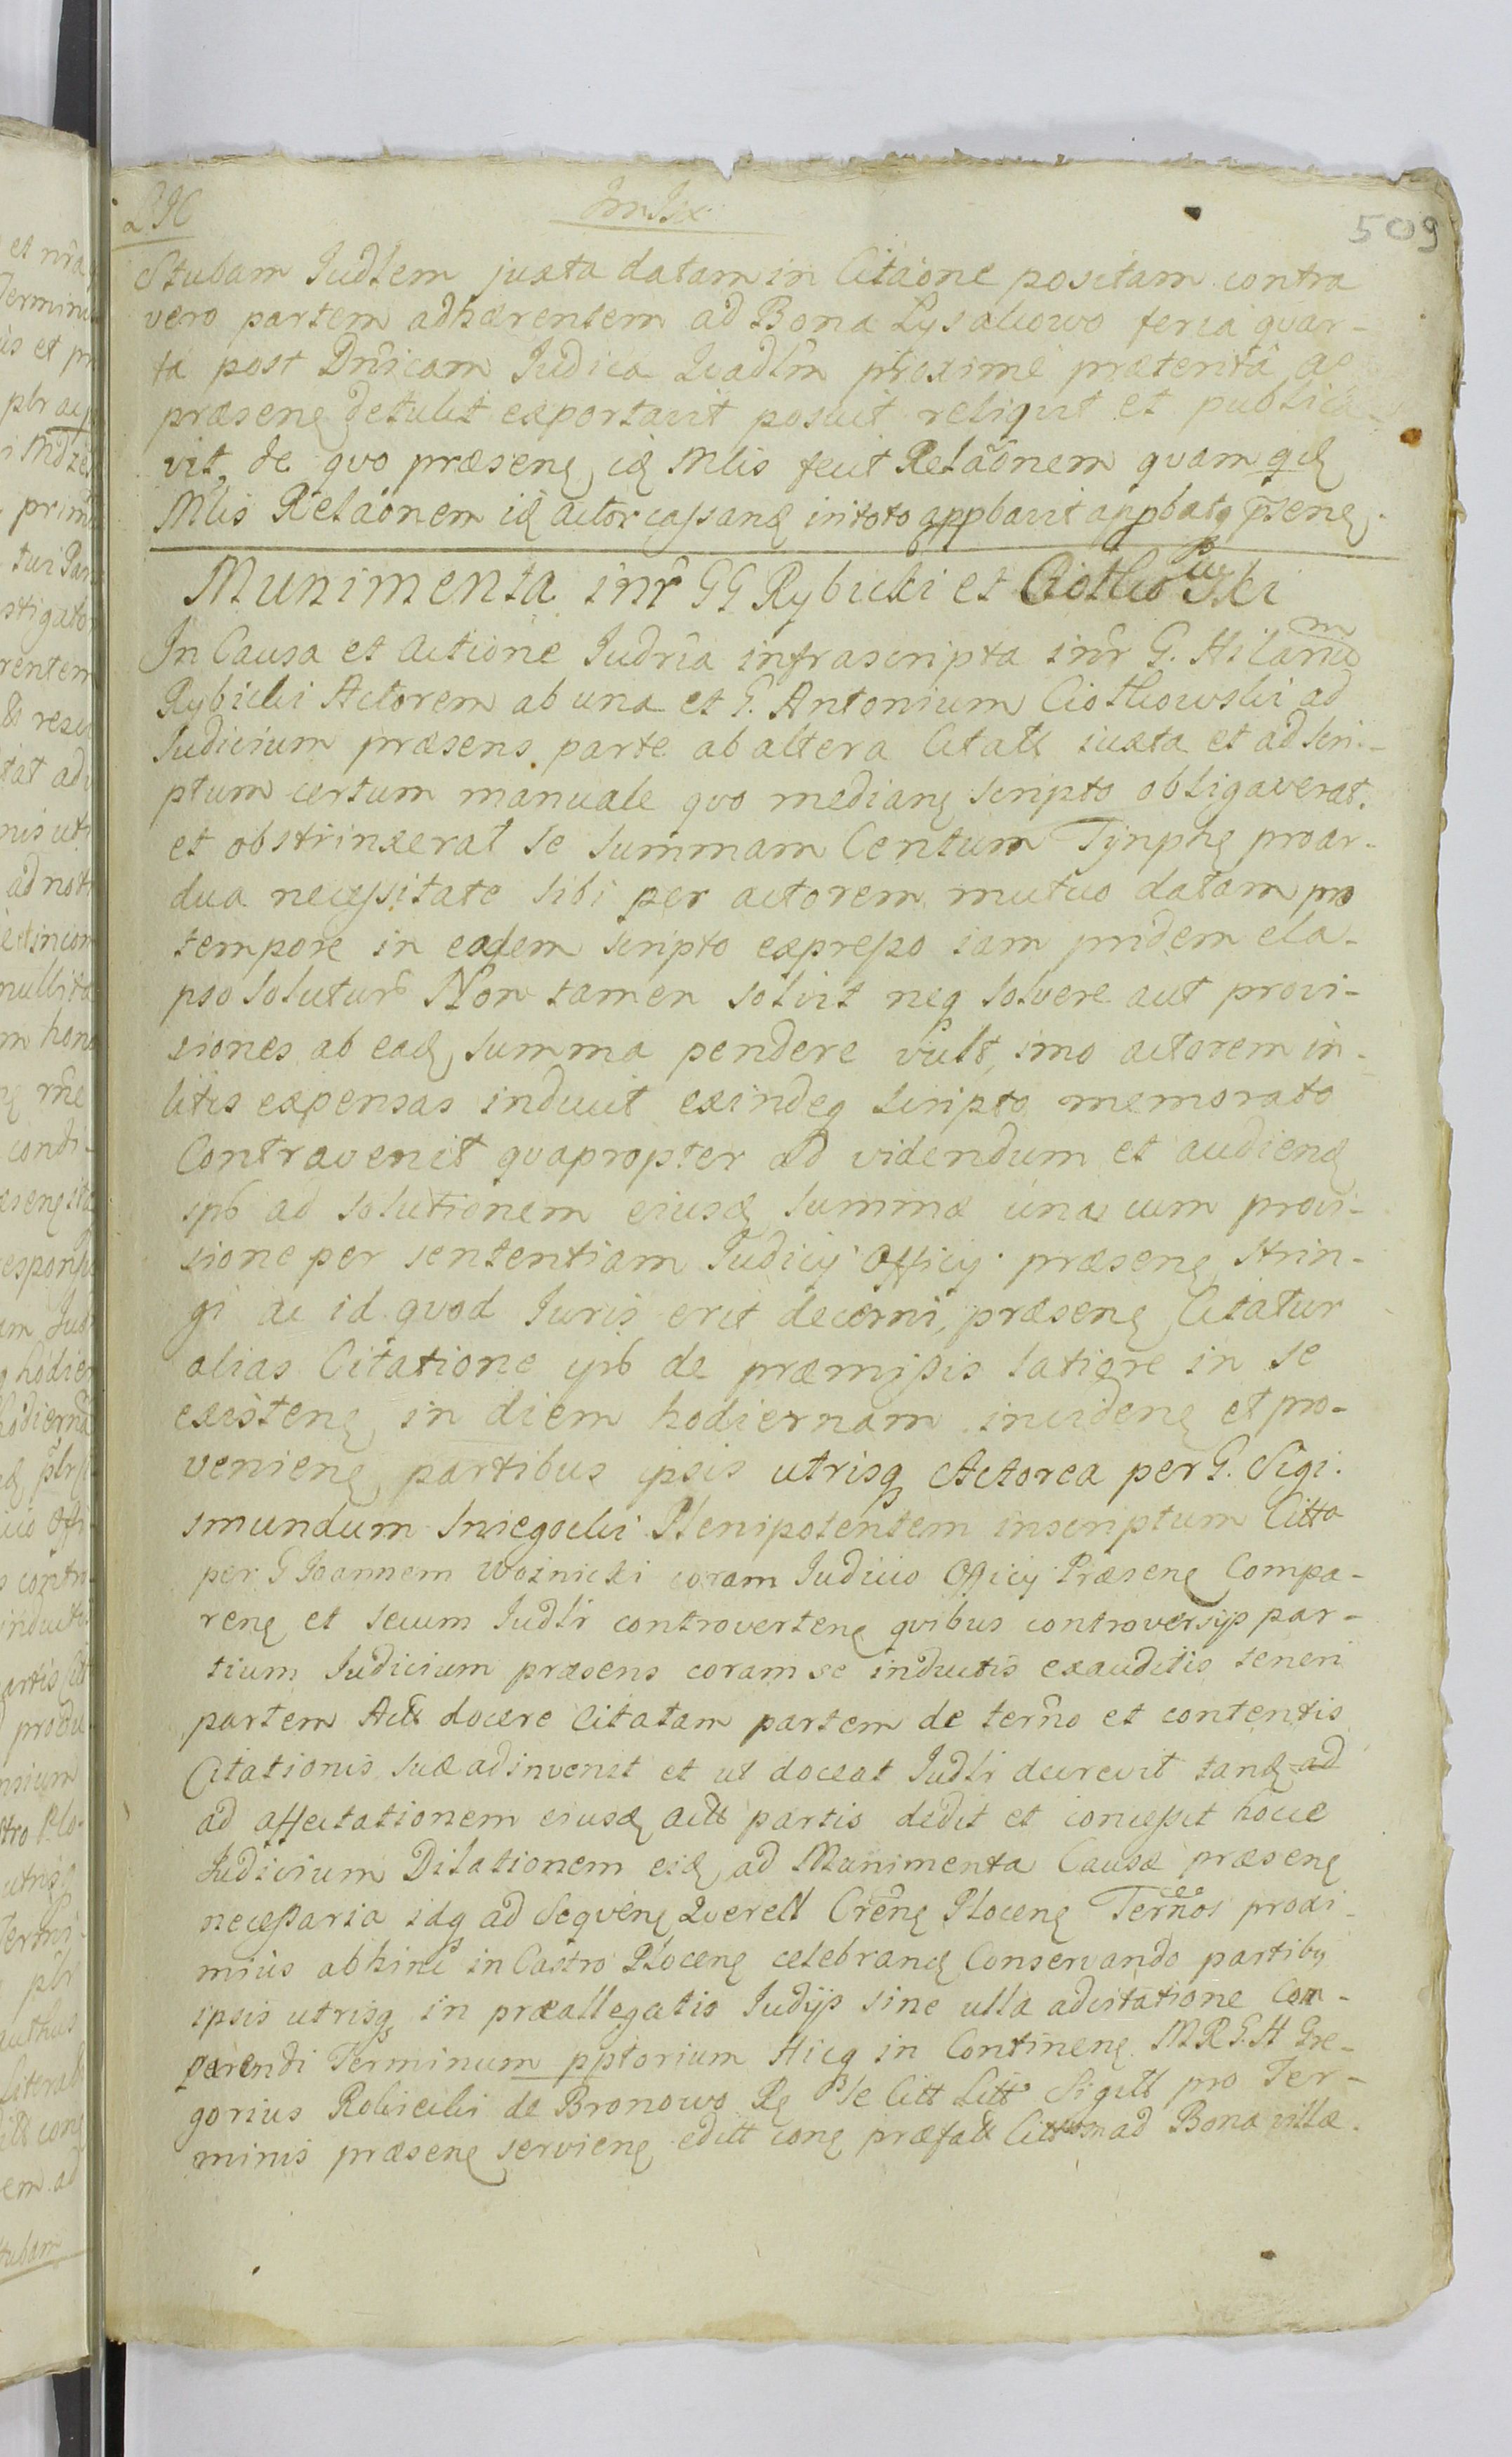 509
Stubam Iudlem juxta datam in Citãone positam contra
vero partem adhærentem ad Bona Lysakowo feria quar-
ta post Dnicam Iudica Quadlm proxime præterita ac
præsenę detulit exportavit posuit reliquit et publica-
vit, de quo præsenę, idę Mlis fecit Relãonem quam qdę
Mlis Relãonem idę actor cassandę in toto appbavit appbatq p̃senę.
Munimenta inr̃ GG Rybicki et Ciotkowski
In Causa et Actione Iudr̃ia infrascripta inr̃ G. Hilarium
Rybicki Actorem ab una et G. Antonium Ciotkowski ad
Iudicium præsens parte ab altera Citatt iuxta et ad Scri-
ptum certum manuale quo medianę scripto obligaverat
et obstrinxerat se summam Centum Tynphę pro ar-
dua necessitate sibi per actorem mutuo datam pro
tempore in eodem scripto expresso iam pridem ela-
pso solutur̃ Non tamen solvit neq solvere aut provi-
siones ab eadę summa pendere vult, imo actorem in
litis expensas induxit exindeq scripto memorato
Contravenit quapropter ad videndum et audiendę
ipb ad solutionem eiusdę summæ una cum provi-
sione per sententiam Iudicij Officij præsenę strin-
gi ac id quod Iuris erit decerni, præsenę Citatur
alias Citatione ipb de præmissis latiore in se
existenę in diem hodiernam incidenę et pro-
venienę partibus ipsis utrisq Actorea per G. Sigi-
smundum Sniegocki Plenipotentem inscriptum Citta
per G Ioannem Woźnicki coram Iudicio Officij Præsenę Compa-
renę et secum Iudlr controvertenę quibus controversijs par-
tium Iudicium præsens coram se inductis exauditis teneri
partem Actt docere Citatam partem de term̃o et contentis
Citationis suæ adinvenit et ut doceat Iudlr decrevit tandę ad
ad affectationem eiusdę actt partis dedit et concessit hocce
Iudicium Dilationem eidę ad Munimenta Causæ præsenę
necessaria idq ad Sequenę Querell Crẽnę Plocenę Term̃os proxi-
mius abhinc in Castro Plocenę celebrandę Conservando partibę
ipsis utrisq in præallegatis Iudijs sine ulla adcitatione Com-
parendi Terminum pptorium Hicq in Continenę MRGH Gre-
gorius Rokicki de Bronowo Rę Ple Citt Litt Sigill pro Ter-
minis præsenę servienę editt conę præfatt Cittum ad Bona villæ